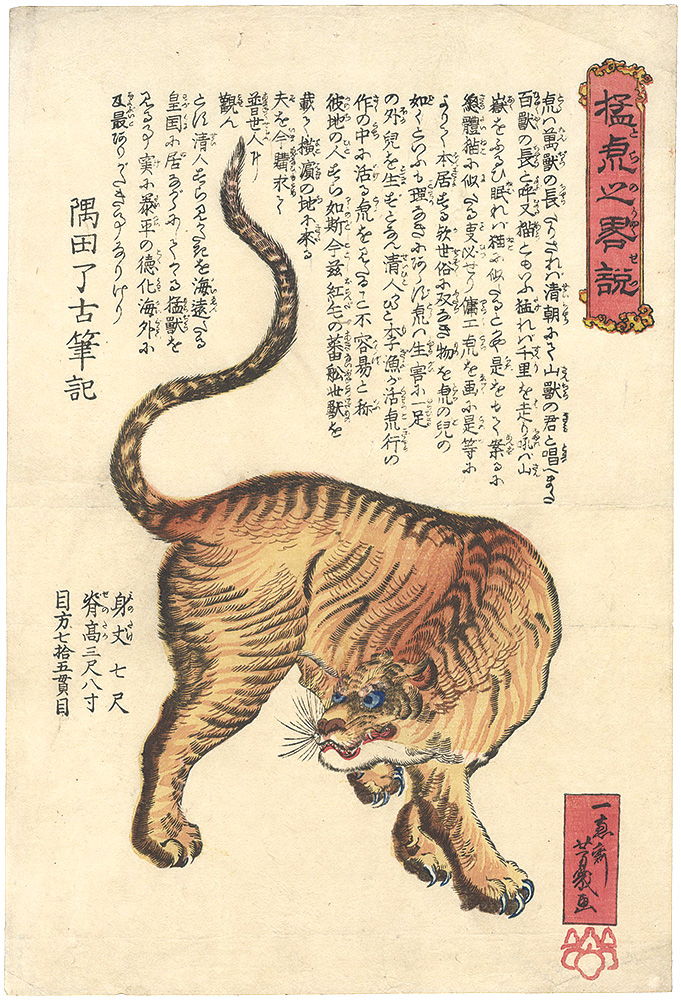 猛虎之畧説
虎ハ萬獣の長たりされバ清朝にてハ山獣の君と唱へまた
百獣の長と呼又猫ともいふ猛れバ千里を走り吼バ山
嶽をふるひ眠れバ猫に似たるとかや是をもて案るに
惣體猫に似たる支必せり傭工虎を画に是等に
よりて本居する欤世俗に双なき物を虎の兒の
如くといふも理なきにあらず虎ハ生害に一足
の外兒を生ずとなん清人 李漁が活虎行の
作の中に活る虎を見たること不容易と称
彼地の人すら如斯今茲紅毛の蕃舩 獣を
載て横濱の地に来る
夫を今購求て
普世人に
觀ん
とす清人すら 海遠たる
皇国に居ながら 猛獣を
見る事実に泰平の徳化海外に
及最ありがたき事なりけり
隅田了古筆記
身丈七尺
脊高三尺八寸
目方七拾五貫目
一恵齋芳幾画